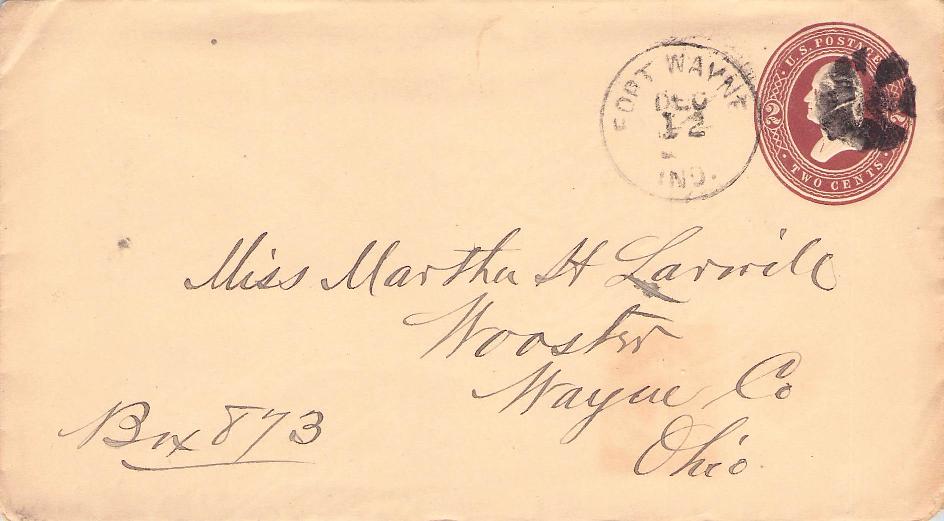 FORT WAYNE
DEC
12
IND.
U.S. POSTAGE
2 2
TWO CENTS
Miss Martha H Larwill
Wooster
Wayne Co
Ohio
Box 873